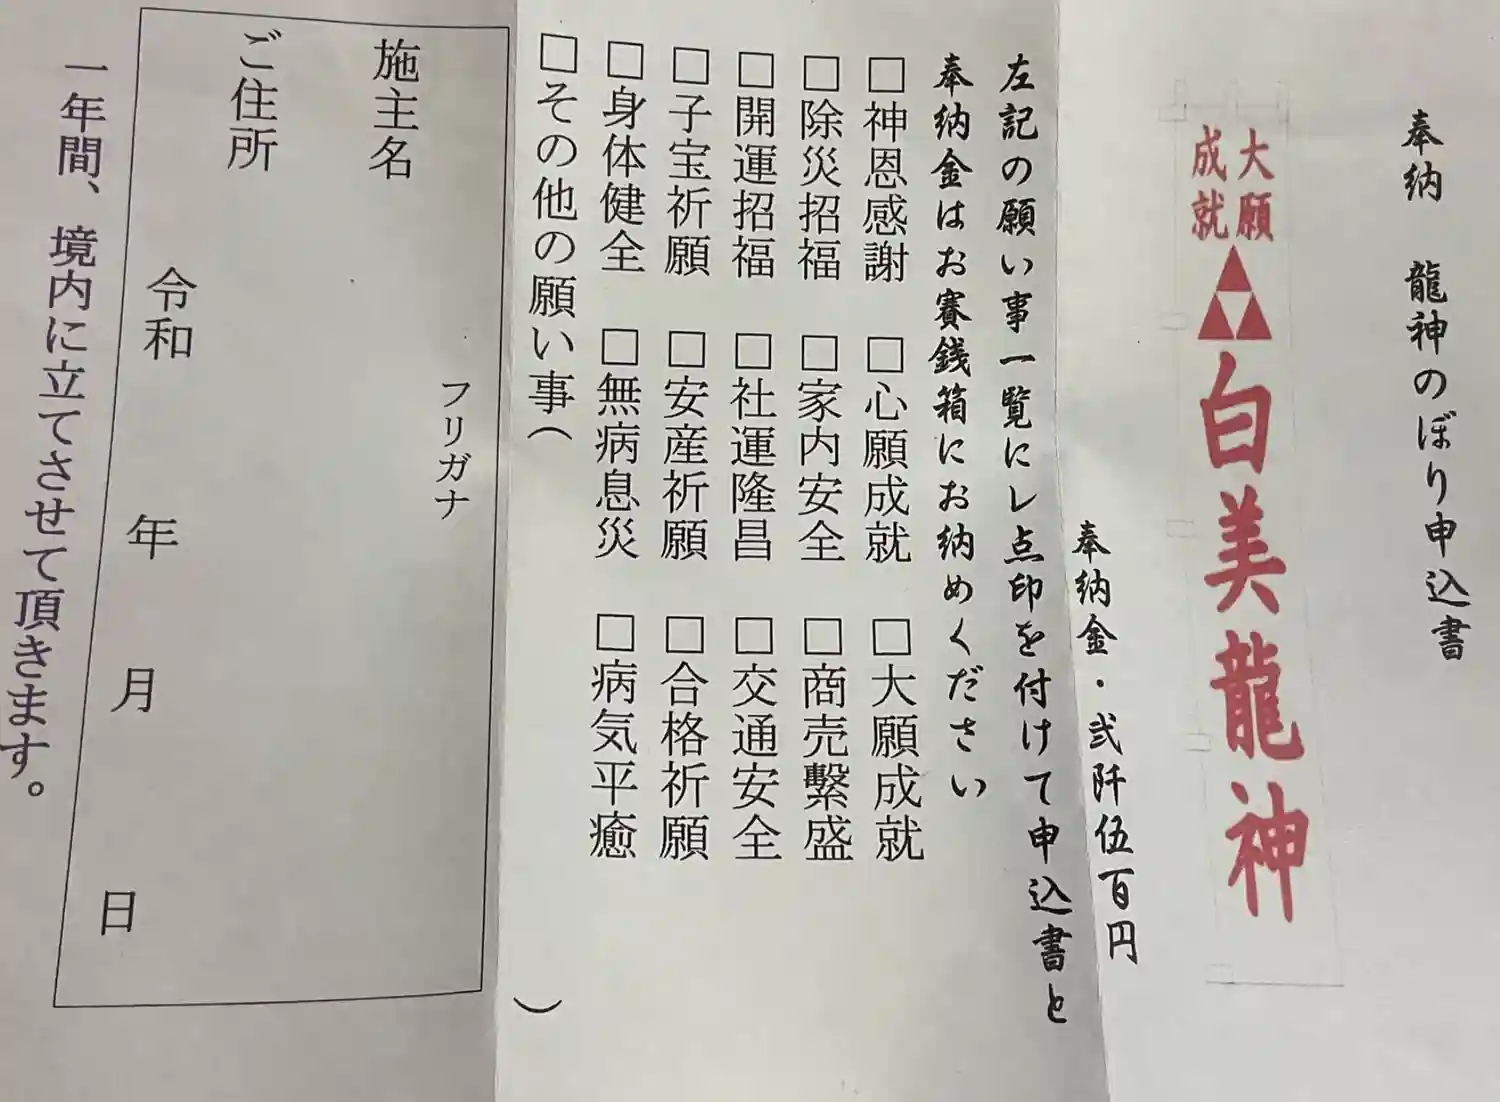 奉納 龍神のぼり申込書
大願
成就
白美龍神
奉納金・弐阡伍百円
左記の願い事一覧にレ点印を付けて申込書と
奉納金はお賽銭箱にお納めください
□神恩感謝 □心願成就 □大願成就
□除災招福 □家内安全 □商売繫盛
□開運招福 □社運隆昌 □交通安全
□子宝祈願 □安産祈願 □合格祈願
□身体健全 □無病息災 □病気平癒
□その他の願い事( )
フリガナ
施主名
ご住所
令和 年 月 日
一年間、境内に立てさせて頂きます。